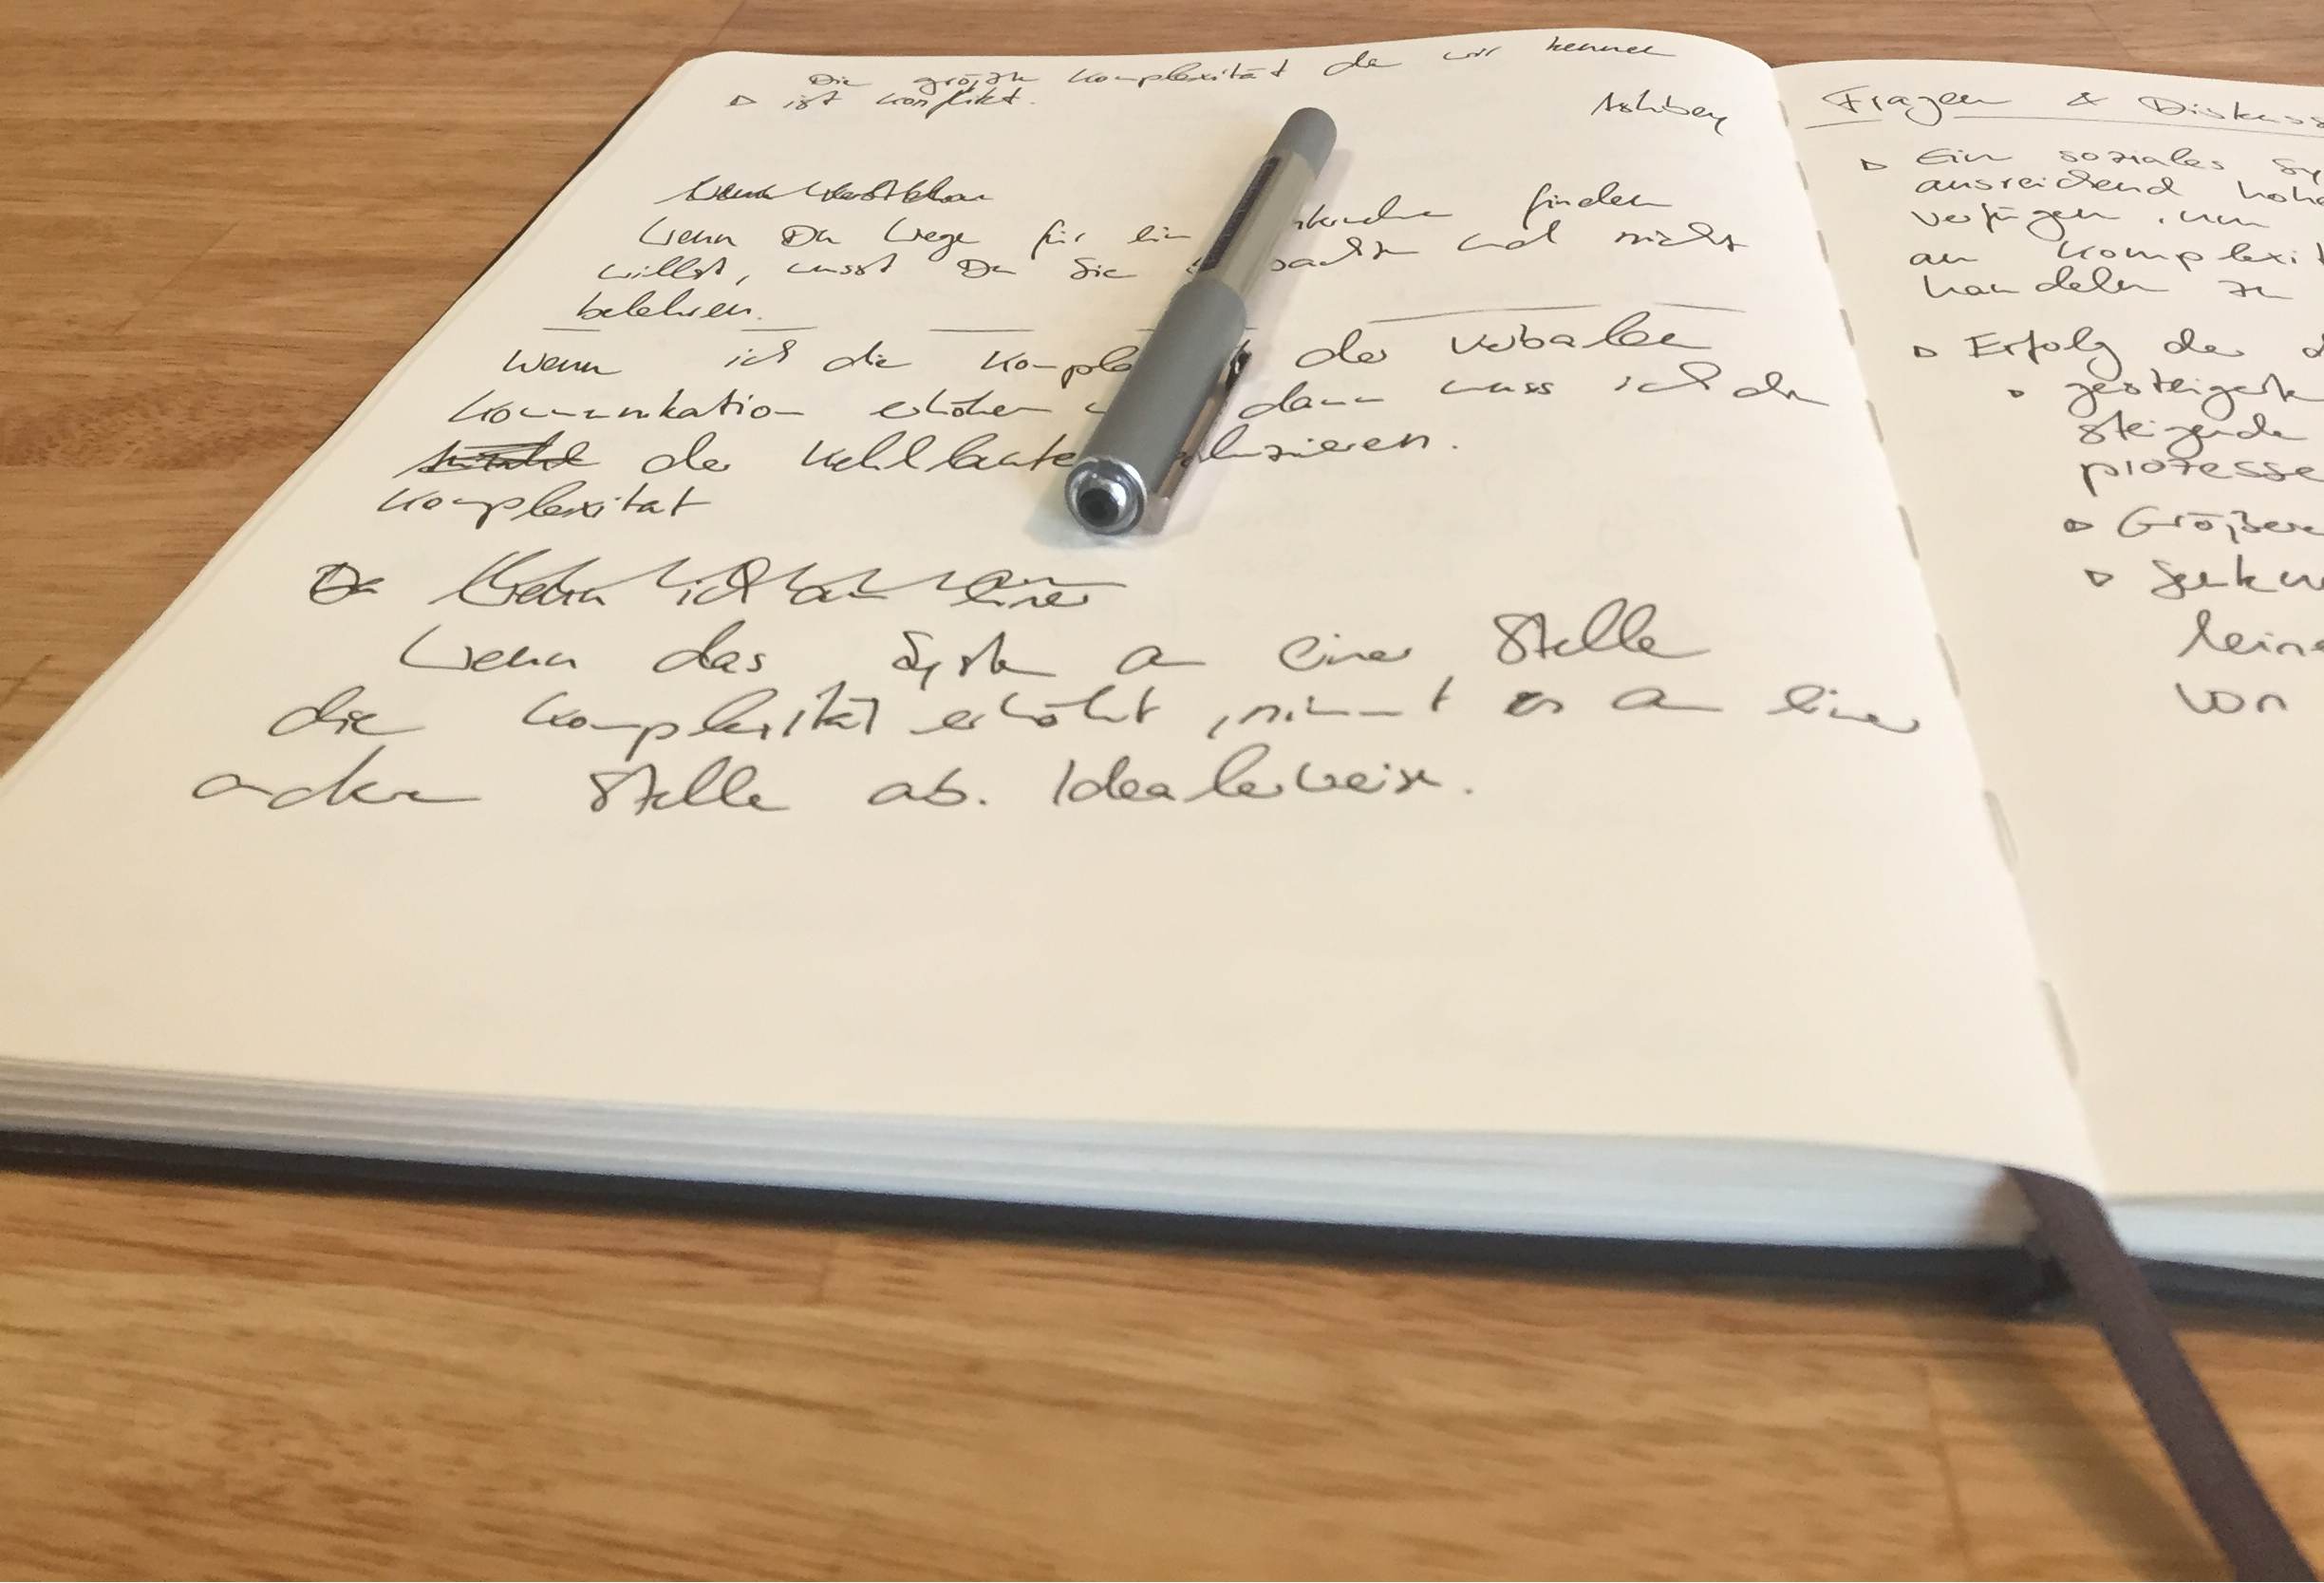 Die größte Komplexität die wir kennen
▷ ist Konflikt.
Ashbey
Wenn Du Wege für ein finden
willst, musst Du Sie und nicht
belehren.
Wenn ich die der verbalen
Kommunikation erhöhen dann muss ich die
der reduzieren.
Komplexität
Wenn ich an einer
Wenn das System an einer Stelle
die Komplexität erhöht, nimmt es an einer
anderen Stelle ab. Idealerweise.
Fragen &
▷ Ein soziales
ausreichend
verfügen, um
an
handeln zu
▷ Erfolg der
▷ gesteigerte
steigende
prozesse
▷ Größere
▷
von